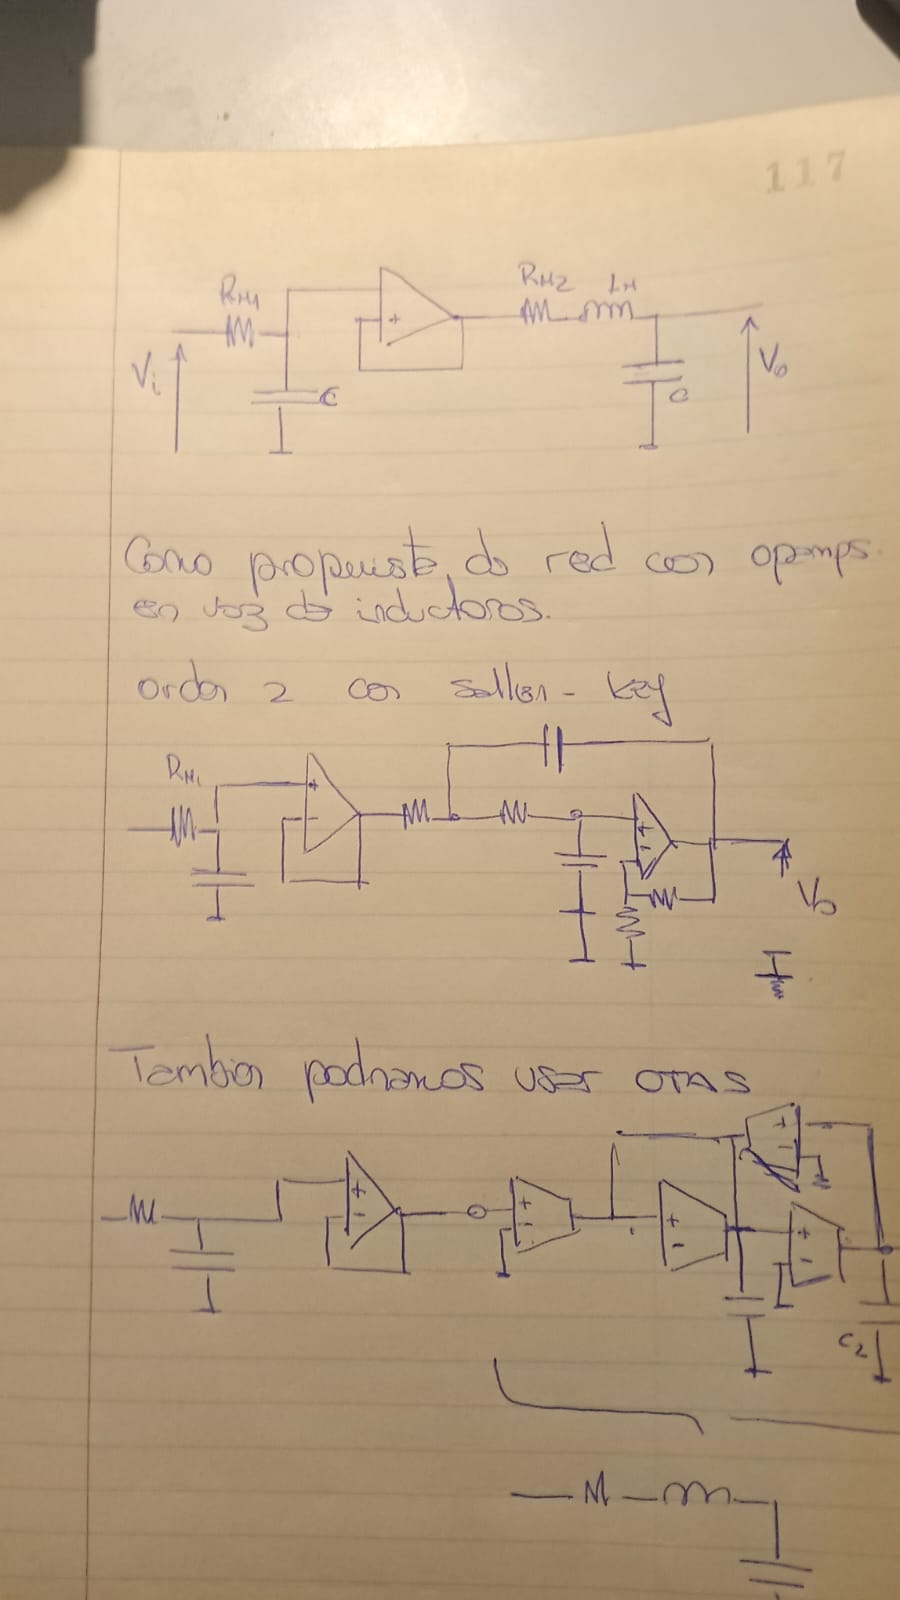 117
RH1
RH2 LH
Vi
C
C
Vo
Como propuesta do red con opamps.
en voz do inductoros.
ordon 2 con sallen - key
RH1
+
-
+
-
Vo
Tambion podriamos usar OTAS
+
-
+
-
+
-
+
-
+
-
C2